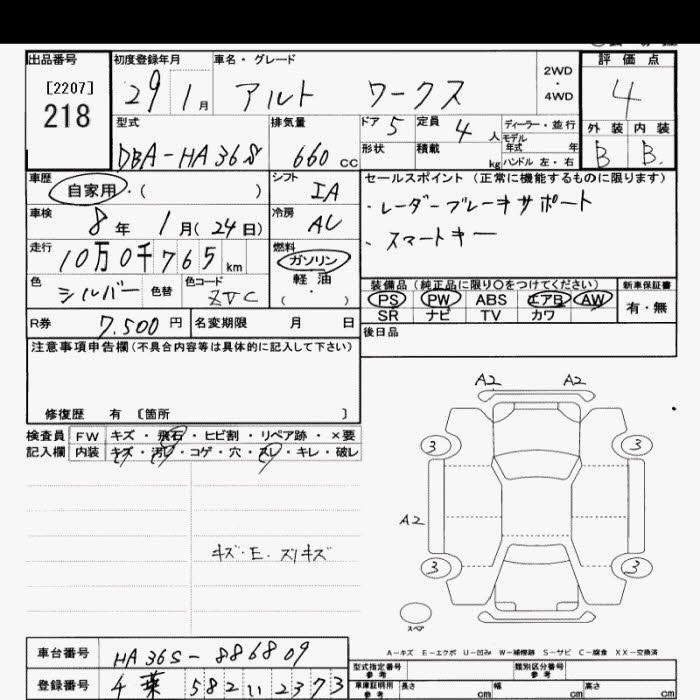 出品番号
[2207]
218
初度登録年月
29 1 月
車名・グレード
アルト ワークス
2WD
・
4WD
評価点
4
外装 内装
B B
型式
DBA-HA36S
排気量
660 cc
ドア 5
定員 4 人
形状
積載 kg
ディーラー・並行
モデル
年式 年
ハンドル 左・右
車歴
自家用・( )
シフト
IA
車検
8 年 1 月(24日)
冷房
AC
走行
10万0千765 km
燃料
ガソリン
軽油
( ・ )
色
シルバー
色替
色コード
ZVC
R券
7.500 円
名変期限 月 日
セールスポイント (正常に機能するものに限ります)
・レーダーブレーキサポート
・スマートキー
装備品(純正品に限り○をつけてください)
PS PW ABS エアB AW
SR ナビ TV カワ
新車保証書
有・無
後日品
注意事項申告欄(不具合内容等は具体的に記入して下さい)
修復歴 有 〔箇所 〕
検査員
記入欄
FW キズ・飛石・ヒビ割・リペア跡・×要
内装 キズ・汚レ・コゲ・穴・スレ・キレ・破レ
キズ・E・スリキズ
A2 A2
3 3
A2
3 3
スペア
A-キズ E-エクボ U-凹み W-補修跡 S-サビ C-腐食 XX-交換済
車台番号
HA36S-886809
登録番号
千葉 582 い 2373
型式指定番号
参考
類別区分番号
参考
車庫証明用
参考
長さ cm
幅 cm
高さ cm